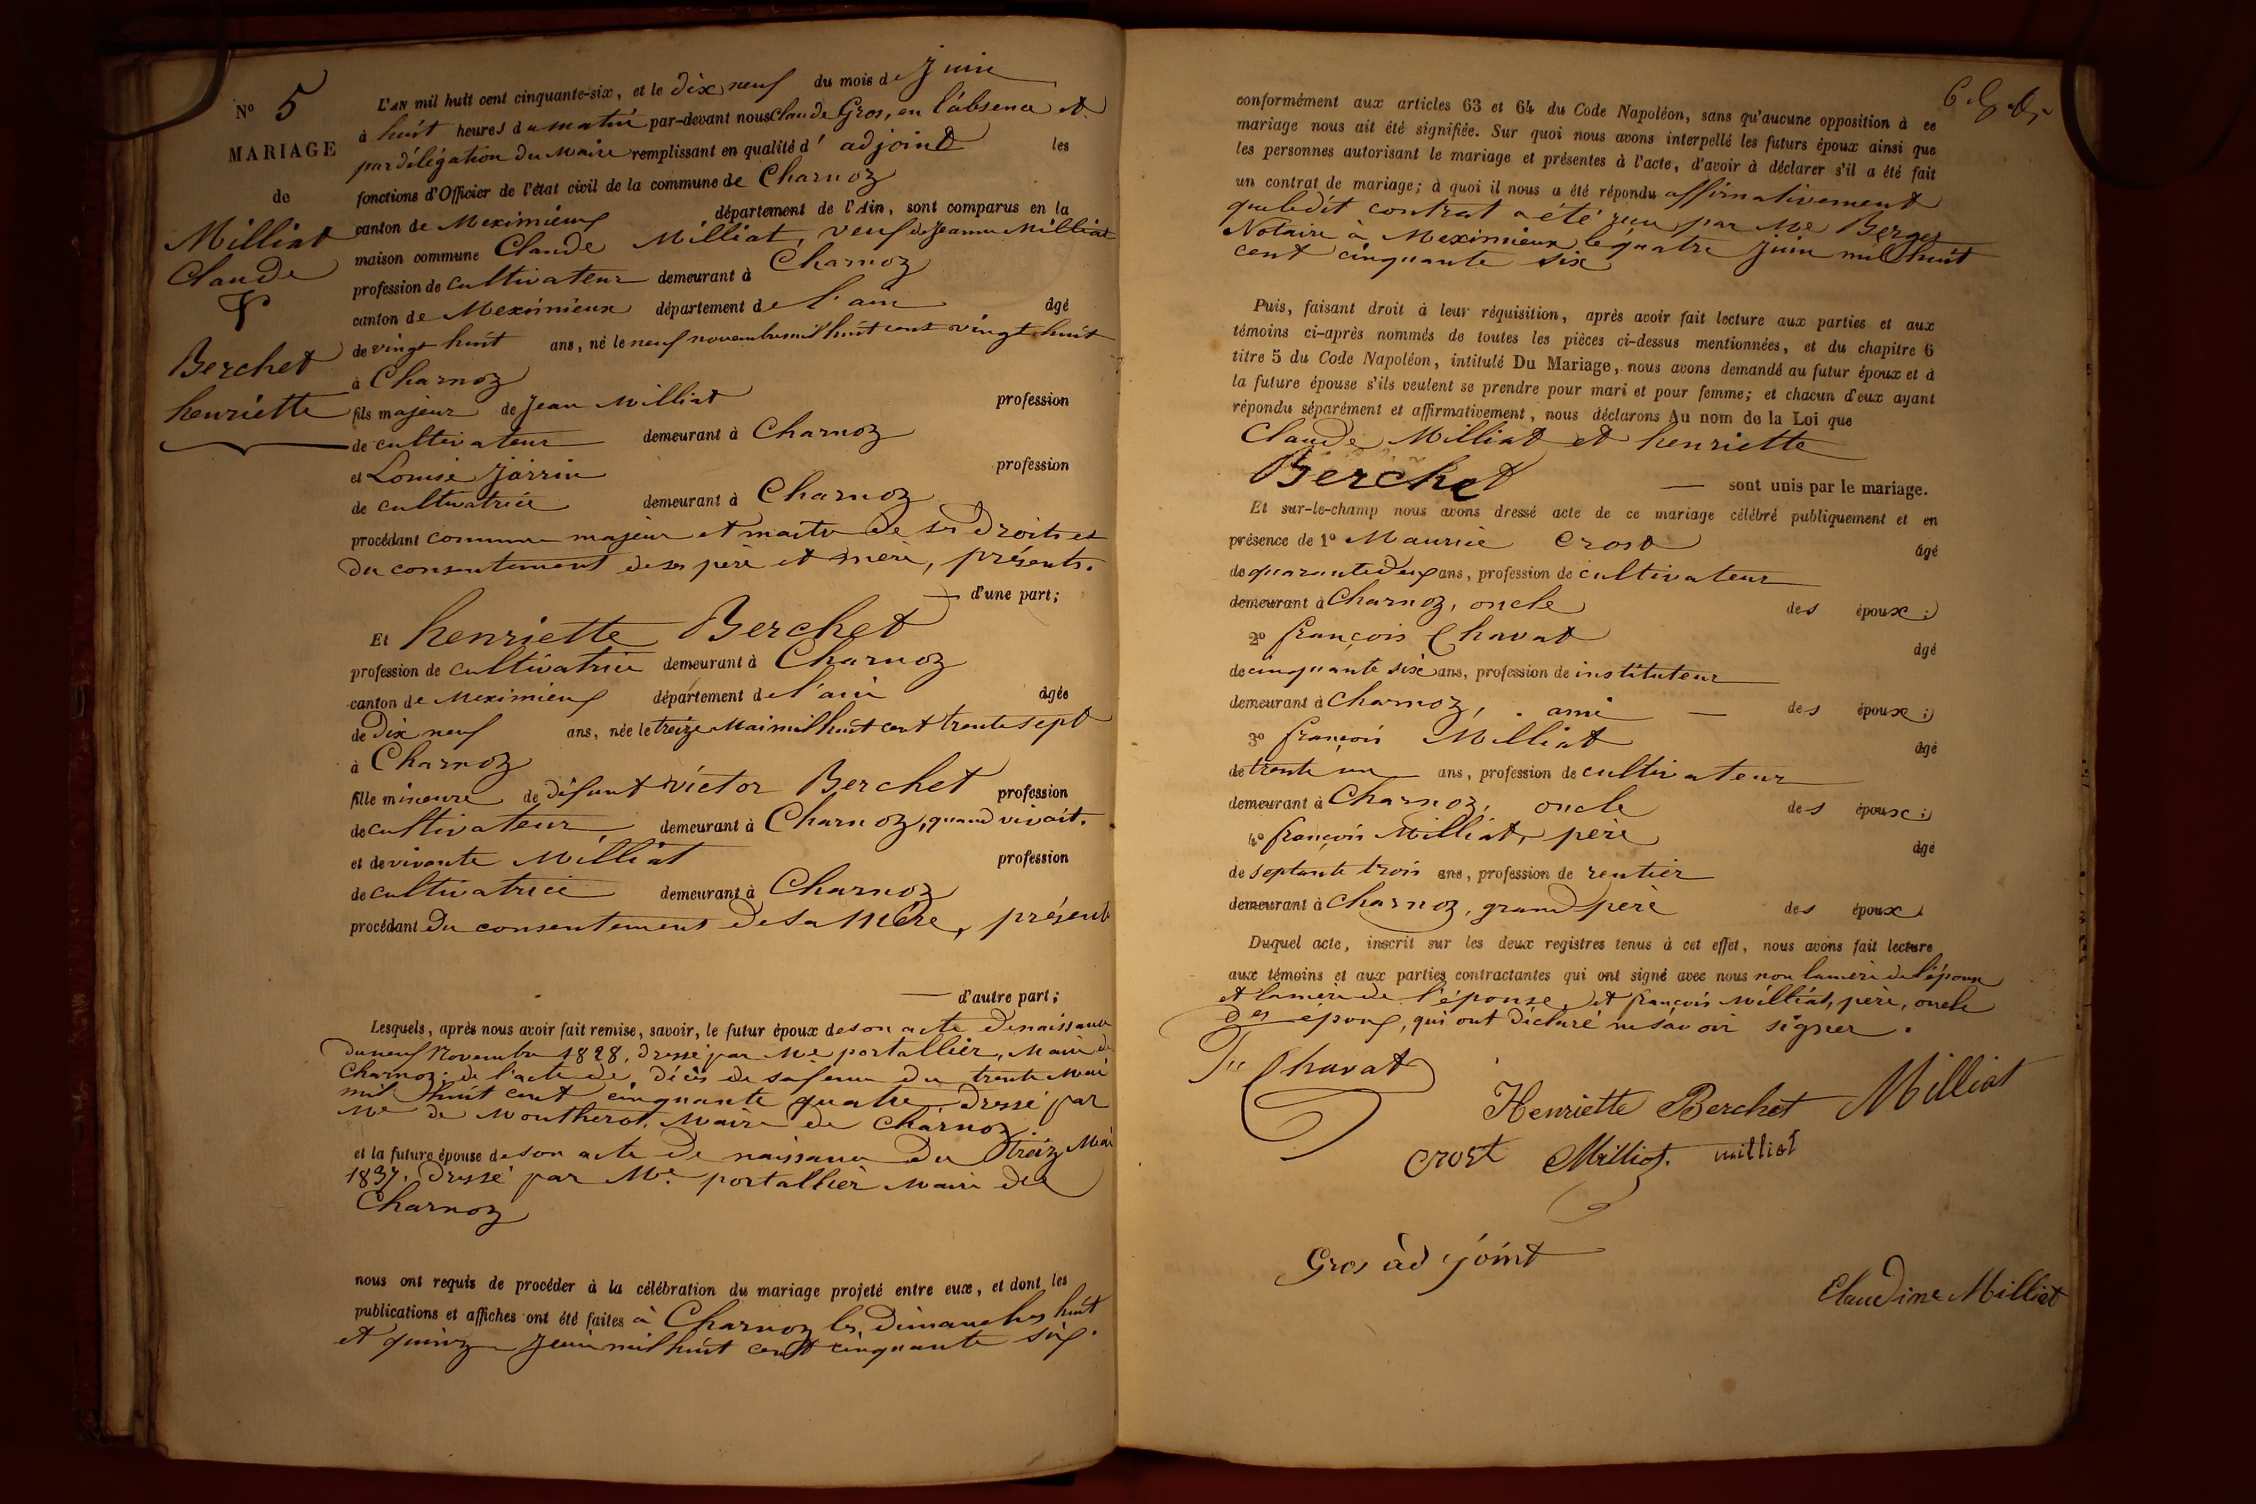 N° 5
MARIAGE
de
Milliat
Claude
&
Berchet
henriette
L'AN mil huit cent cinquante-six, et le dix neuf du mois de juin
à huit heures du matin par-devant nous Claude Gros, en l'absence et
par délégation du Maire remplissant en qualité d'adjoint les
fonctions d'Officier de l'état civil de la commune de Charnoz
canton de Meximieux département de l'Ain, sont comparus en la
maison commune Claude Milliat, veuf de Jeanne Milliat
profession de cultivateur demeurant à Charnoz
canton de Meximieux département de l'ain âgé
de vingt huit ans, né le neuf novembre mil huit cent vingt huit
à Charnoz
fils majeur de Jean Milliat profession
de cultivateur demeurant à Charnoz
et Louise Jarrin profession
de cultivatrice demeurant à Charnoz
procédant comme majeur et maitre de ses droits et
du consentement de ses père et mère, présents.
— d'une part;
Et henriette Berchet
profession de cultivatrice demeurant à Charnoz
canton de Meximieux département de l'ain âgée
de dix neuf ans, née le treize Mai mil huit cent trente sept
à Charnoz
fille mineure de défunt victor Berchet profession
de cultivateur, demeurant à Charnoz, quand vivait.
et de vivante Milliat profession
de cultivatrice demeurant à Charnoz
procédant du consentement de sa Mère, présente
— d'autre part;
Lesquels, après nous avoir fait remise, savoir, le futur époux de son acte de naissance
du neuf Novembre 1828, dressé par Mr portallier, Maire de
Charnoz; de l'acte de décès de sa femme du trente Mai
mil huit cent cinquante quatre dressé par
Mr de Montherot, Maire de Charnoz
et la future épouse de son acte de naissance du treize Mai
1837. dressé par Mr. portallier Maire de
Charnoz
nous ont requis de procéder à la célébration du mariage projeté entre eux, et dont les
publications et affiches ont été faites à Charnoz les dimanches huit
et quinze juin mil huit cent cinquante six.
conformément aux articles 63 et 64 du Code Napoléon, sans qu'aucune opposition à ce
mariage nous ait été signifiée. Sur quoi nous avons interpellé les futurs époux ainsi que
les personnes autorisant le mariage et présentes à l'acte, d'avoir à déclarer s'il a été fait
un contrat de mariage; à quoi il nous a été répondu affirmativement
que ledit contrat a été reçu par Me Berger
Notaire à Meximieux le quatre juin mil huit
cent cinquante six
Puis, faisant droit à leur réquisition, après avoir fait lecture aux parties et aux
témoins ci-après nommés de toutes les pièces ci-dessus mentionnées, et du chapitre 6
titre 5 du Code Napoléon, intitulé Du Mariage, nous avons demandé au futur époux et à
la future épouse s'ils veulent se prendre pour mari et pour femme; et chacun d'eux ayant
répondu séparément et affirmativement, nous déclarons Au nom de la Loi que
Claude Milliat et henriette
Berchet — sont unis par le mariage.
Et sur-le-champ nous avons dressé acte de ce mariage célébré publiquement et en
présence de 1° Maurice Crost âgé
de quarante deux ans, profession de cultivateur
demeurant à Charnoz, oncle des époux;
2° françois Chavat âgé
de cinquante six ans, profession de instituteur
demeurant à Charnoz, ami — des époux;
3° françois Milliat âgé
de trente un ans, profession de cultivateur
demeurant à Charnoz, oncle des époux;
4° françois Milliat, père âgé
de septante trois ans, profession de rentier
demeurant à Charnoz, grand père des époux.
Duquel acte, inscrit sur les deux registres tenus à cet effet, nous avons fait lecture
aux témoins et aux parties contractantes qui ont signé avec nous non la mère de l'époux
et la mère de l'épouse, et françois Milliat, père, oncle
des époux, qui ont déclaré ne savoir signer.
Chavat
Henriette Berchet Milliat
Crost Milliat. milliat
Gros adjoint
Claudine Milliat